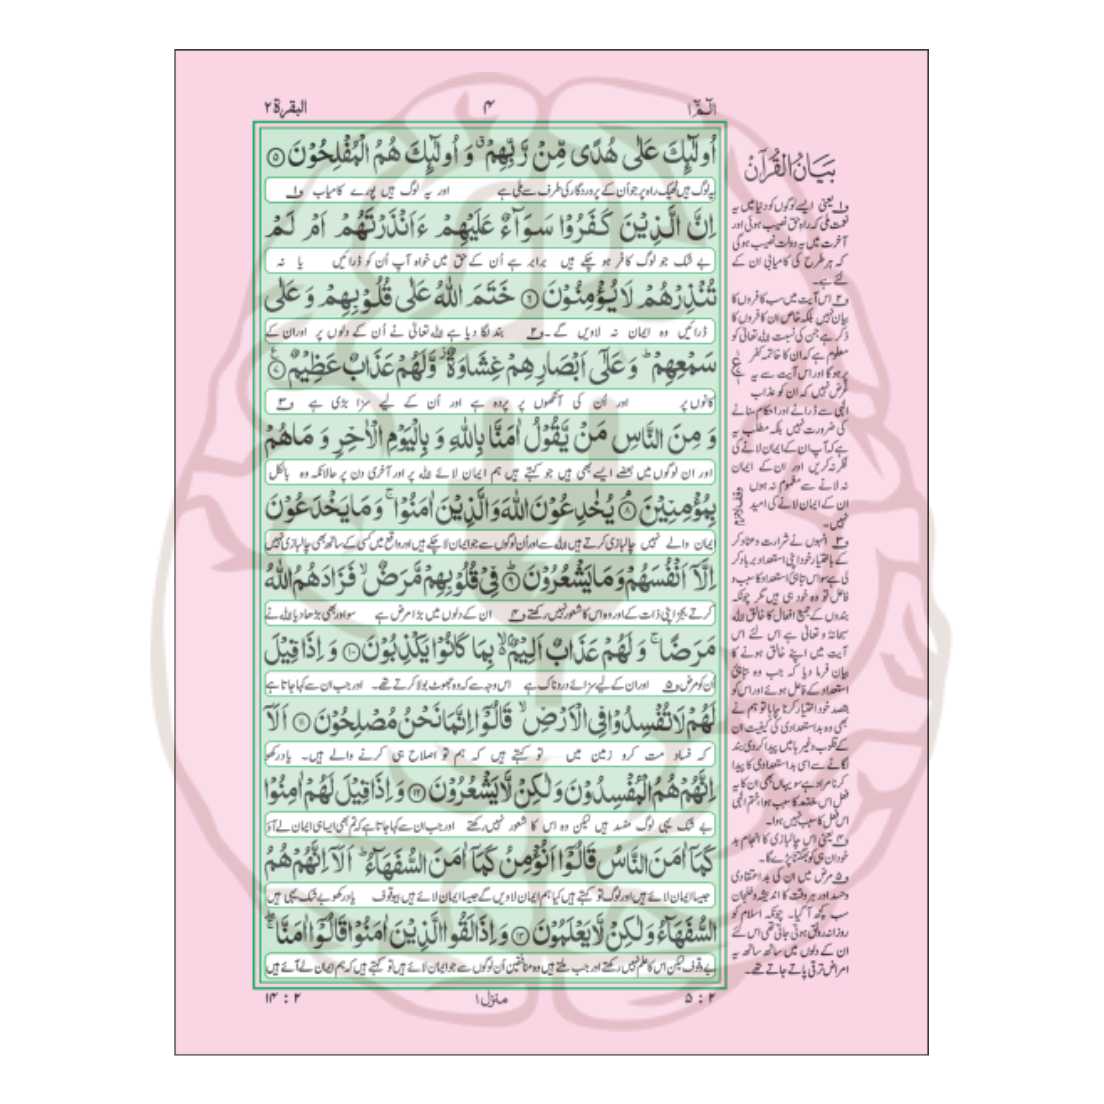 الٓمّٓ ۱
۴
البقرة ۲
اُولٰٓئِكَ عَلٰی هُدًی مِّنْ رَّبِّهِمْ ۗ وَ اُولٰٓئِكَ هُمُ الْمُفْلِحُوْنَ ۵
یہ لوگ ہیں ٹھیک راہ پر جو اُن کے پروردگار کی طرف سے ملی ہے اور یہ لوگ ہیں پورے کامیاب و۱
اِنَّ الَّذِیْنَ كَفَرُوْا سَوَآءٌ عَلَیْهِمْ ءَاَنْذَرْتَهُمْ اَمْ لَمْ
بے شک جو لوگ کافر ہو چکے ہیں برابر ہے اُن کے حق میں خواہ آپ اُن کو ڈرائیں یا نہ
تُنْذِرْهُمْ لَا یُؤْمِنُوْنَ ۶ خَتَمَ اللّٰهُ عَلٰی قُلُوْبِهِمْ وَ عَلٰی
ڈرائیں وہ ایمان نہ لاویں گے۔ و۲ بند لگا دیا ہے اللہ تعالیٰ نے اُن کے دلوں پر اور ان کے
سَمْعِهِمْ ؕ وَ عَلٰۤی اَبْصَارِهِمْ غِشَاوَةٌ ؗ وَّ لَهُمْ عَذَابٌ عَظِیْمٌ ۷
کانوں پر اور اُن کی آنکھوں پر پردہ ہے اور اُن کے لیے سزا بڑی ہے و۳
وَ مِنَ النَّاسِ مَنْ یَّقُوْلُ اٰمَنَّا بِاللّٰهِ وَ بِالْیَوْمِ الْاٰخِرِ وَ مَا هُمْ
اور ان لوگوں میں بعضے ایسے بھی ہیں جو کہتے ہیں ہم ایمان لائے اللہ پر اور آخری دن پر حالانکہ وہ بالکل
بِمُؤْمِنِیْنَ ۸ یُخٰدِعُوْنَ اللّٰهَ وَ الَّذِیْنَ اٰمَنُوْا ۚ وَ مَا یَخْدَعُوْنَ
ایمان والے نہیں چالبازی کرتے ہیں اللہ سے اور اُن لوگوں سے جو ایمان لا چکے ہیں اور واقع میں کسی کے ساتھ بھی چالبازی نہیں
اِلَّاۤ اَنْفُسَهُمْ وَ مَا یَشْعُرُوْنَ ۹ فِیْ قُلُوْبِهِمْ مَّرَضٌ ۙ فَزَادَهُمُ اللّٰهُ
کرتے بجز اپنی ذات کے اور وہ اس کا شعور نہیں رکھتے و۴ ان کے دلوں میں بڑا مرض ہے سو اور بھی بڑھا دیا اللہ نے
مَرَضًا ۚ وَ لَهُمْ عَذَابٌ اَلِیْمٌۢ ۙ بِمَا كَانُوْا یَكْذِبُوْنَ ۱۰ وَ اِذَا قِیْلَ
ان کو مرض و۵ اور ان کے لیے سزائے دردناک ہے اس وجہ سے کہ وہ جھوٹ بولا کرتے تھے۔ اور جب ان سے کہا جاتا ہے
لَهُمْ لَا تُفْسِدُوْا فِی الْاَرْضِ ۙ قَالُوْۤا اِنَّمَا نَحْنُ مُصْلِحُوْنَ ۱۱ اَلَاۤ
کہ فساد مت کرو زمین میں تو کہتے ہیں کہ ہم تو اصلاح ہی کرنے والے ہیں۔ یاد رکھو
اِنَّهُمْ هُمُ الْمُفْسِدُوْنَ وَ لٰكِنْ لَّا یَشْعُرُوْنَ ۱۲ وَ اِذَا قِیْلَ لَهُمْ اٰمِنُوْا
بے شک یہی لوگ مفسد ہیں لیکن وہ اس کا شعور نہیں رکھتے اور جب ان سے کہا جاتا ہے کہ تم بھی ایسا ہی ایمان لے آؤ
كَمَاۤ اٰمَنَ النَّاسُ قَالُوْۤا اَنُؤْمِنُ كَمَاۤ اٰمَنَ السُّفَهَآءُ ؕ اَلَاۤ اِنَّهُمْ هُمُ
جیسا ایمان لائے ہیں اور لوگ تو کہتے ہیں کیا ہم ایمان لاویں گے جیسا ایمان لائے ہیں بیوقوف یاد رکھو بے شک یہی ہیں
السُّفَهَآءُ وَ لٰكِنْ لَّا یَعْلَمُوْنَ ۱۳ وَ اِذَا لَقُوا الَّذِیْنَ اٰمَنُوْا قَالُوْۤا اٰمَنَّا ۚۖ
بے وقوف لیکن اس کا علم نہیں رکھتے اور جب ملتے ہیں وہ منافقین اُن لوگوں سے جو ایمان لائے ہیں تو کہتے ہیں کہ ہم ایمان لے آئے ہیں
بَیَانُ الْقُرْآن
و۱ یعنی ایسے لوگوں کو دنیا میں یہ
نعمت ملی کہ راہِ حق نصیب ہوئی اور
آخرت میں یہ دولت نصیب ہوگی
کہ ہر طرح کی کامیابی ان کے
لئے ہے۔
و۲ اس آیت میں سب کافروں کا
بیان نہیں بلکہ خاص ان کافروں کا
ذکر ہے جن کی نسبت اللہ تعالیٰ کو
معلوم ہے کہ ان کا خاتمہ کفر
پر ہوگا اور اس آیت سے یہ
غرض نہیں کہ ان کو عذاب
الٰہی سے ڈرانے اور احکام سنانے
کی ضرورت نہیں بلکہ مطلب یہ
ہے کہ آپ ان کے ایمان لانے کی
فکر نہ کریں اور ان کے ایمان
نہ لانے سے مغموم نہ ہوں
ان کے ایمان لانے کی امید
نہیں۔
و۳ انہوں نے شرارت و عناد کر
کے باختیار خود اپنی استعداد برباد کر
لی ہے سو اس تباہی استعداد کا سبب و
فاعل تو وہ خود ہی ہیں مگر چونکہ
بندوں کے جمیع افعال کا خالق اللہ
سبحانہٗ و تعالیٰ ہے اس لئے اس
آیت میں اپنے خالق ہونے کا
بیان فرما دیا کہ جب وہ تباہی
استعداد کے فاعل ہوئے اور اس کو
بقصد خود اختیار کرنا چاہا تو ہم نے
بھی وہ بد استعدادی کی کیفیت ان
کے قلوب وغیرہا میں پیدا کر دی بند
لگانے سے اسی بد استعدادی کا پیدا
کرنا مراد ہے سو یہاں بھی ان کا یہ
فعل اس ختم کا سبب ہوا، ختمِ الٰہی
اس فعل کا سبب نہیں ہوا۔
و۴ یعنی اس چالبازی کا انجام بد
خود ان ہی کو بھگتنا پڑے گا۔
و۵ مرض میں ان کی بد اعتقادی
و حسد اور ہر وقت کا اندیشہ و خلجان
سب کچھ آ گیا۔ چونکہ اسلام کو
روزانہ رونق ہوتی جاتی تھی اس لئے
ان کے دلوں میں ساتھ ساتھ یہ
امراض ترقی پاتے جاتے تھے۔
۲ : ۵
منزل ۱
۲ : ۱۴